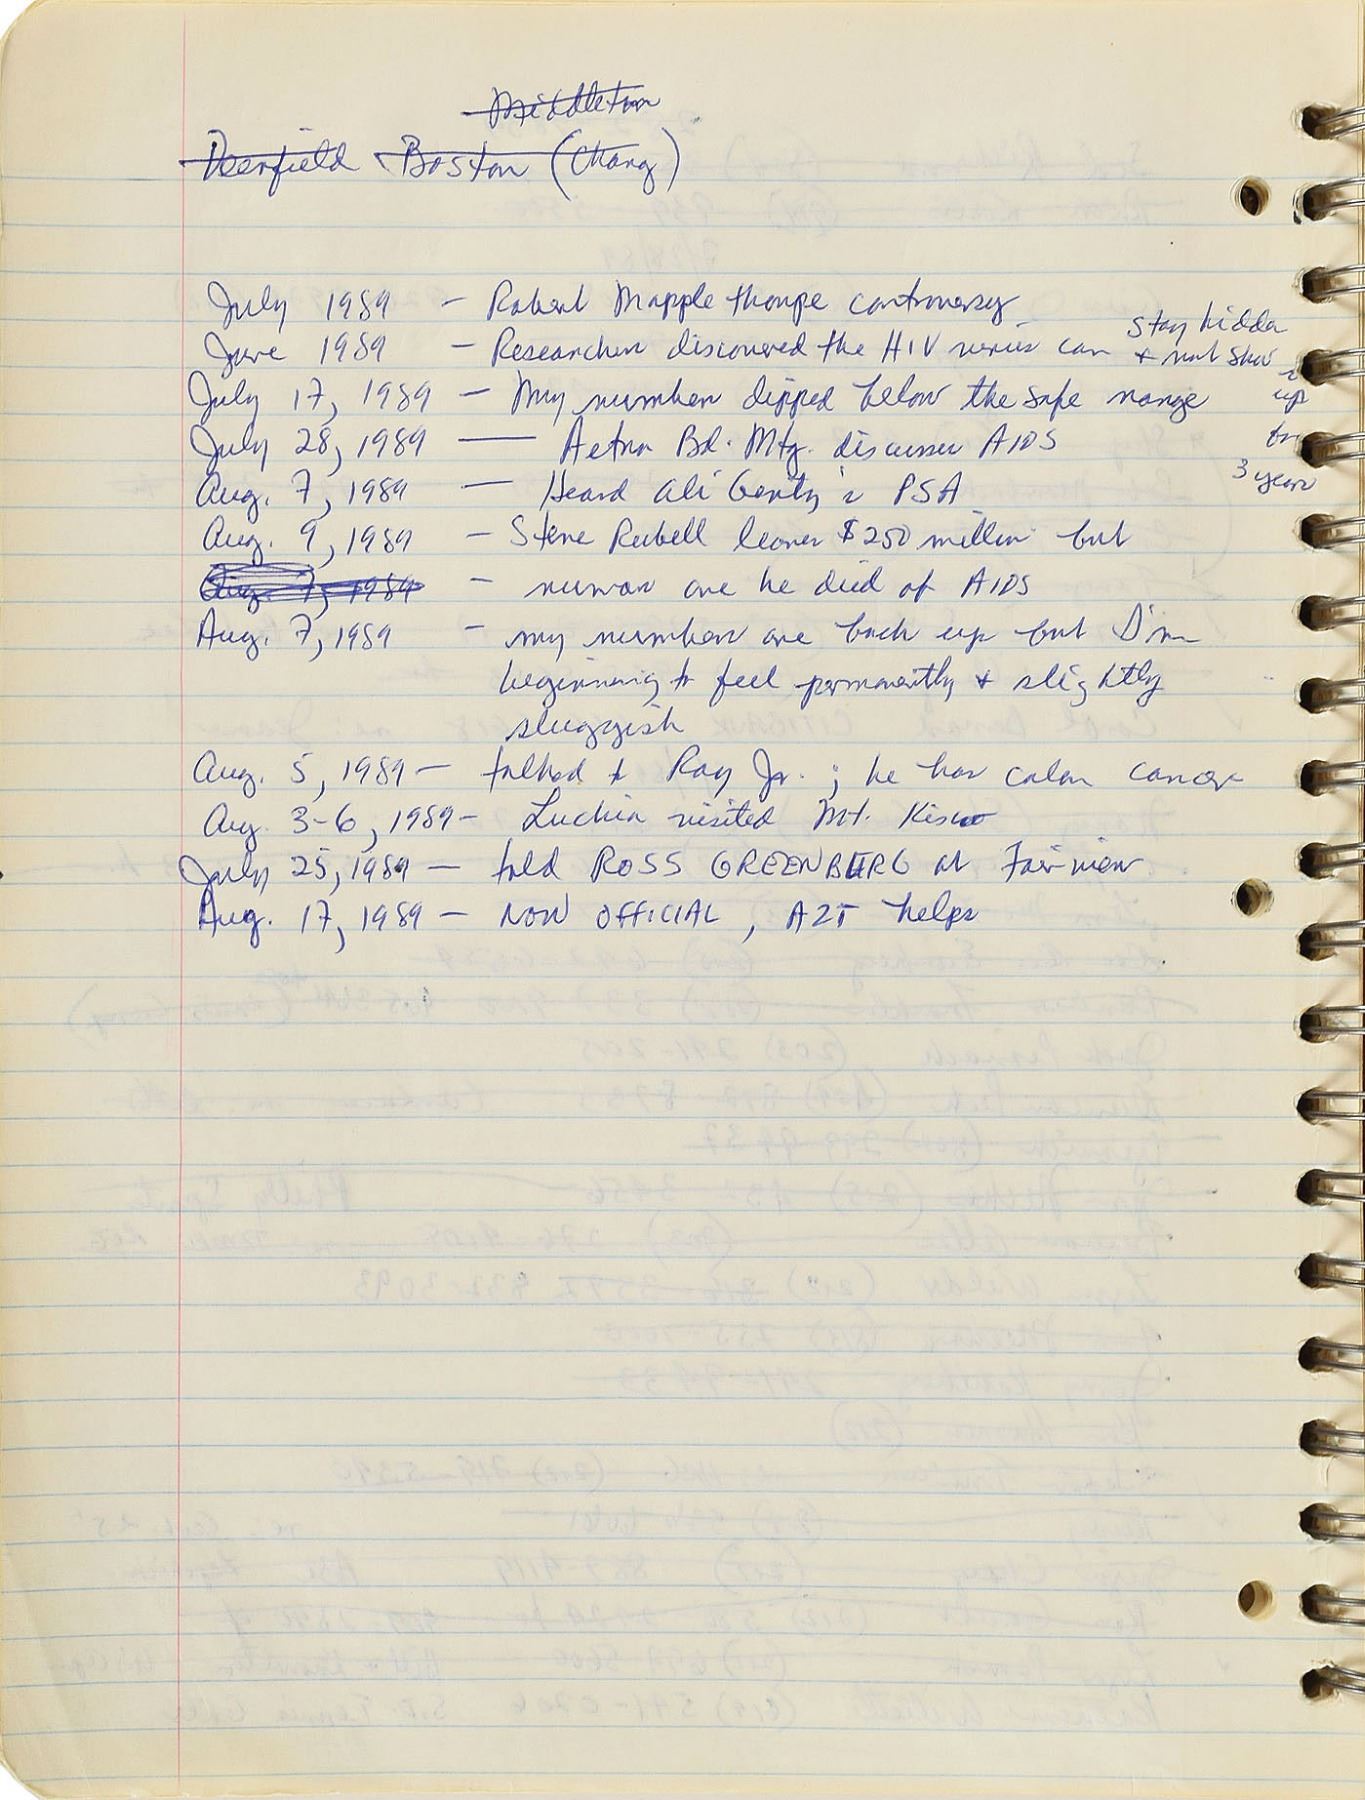 Middleton
Deerfield Boston (Chang)
July 1989 - Robert Mapplethorpe controversy
June 1989 - Researchers discovered the HIV virus can stay hidden & not show up for 3 years
July 17, 1989 - My numbers dipped below the safe range
July 28, 1989 — Aetna Bd. Mtg. discusses AIDS
Aug. 7, 1989 - Heard Ali Gertz's PSA
Aug. 9, 1989 - Steve Rubell leaves $250 million but
Aug. 7, 1989 - rumors are he died of AIDS
Aug. 7, 1989 - my numbers are back up but I'm
beginning to feel permanently & slightly
sluggish
Aug. 5, 1989 - talked to Ray Jr.; he has colon cancer
Aug. 3-6, 1989 - Luchia visited Mt. Kisco
July 25, 1989 - told ROSS GREENBERG at Fairview
Aug. 17, 1989 - NOW OFFICIAL, AZT helps